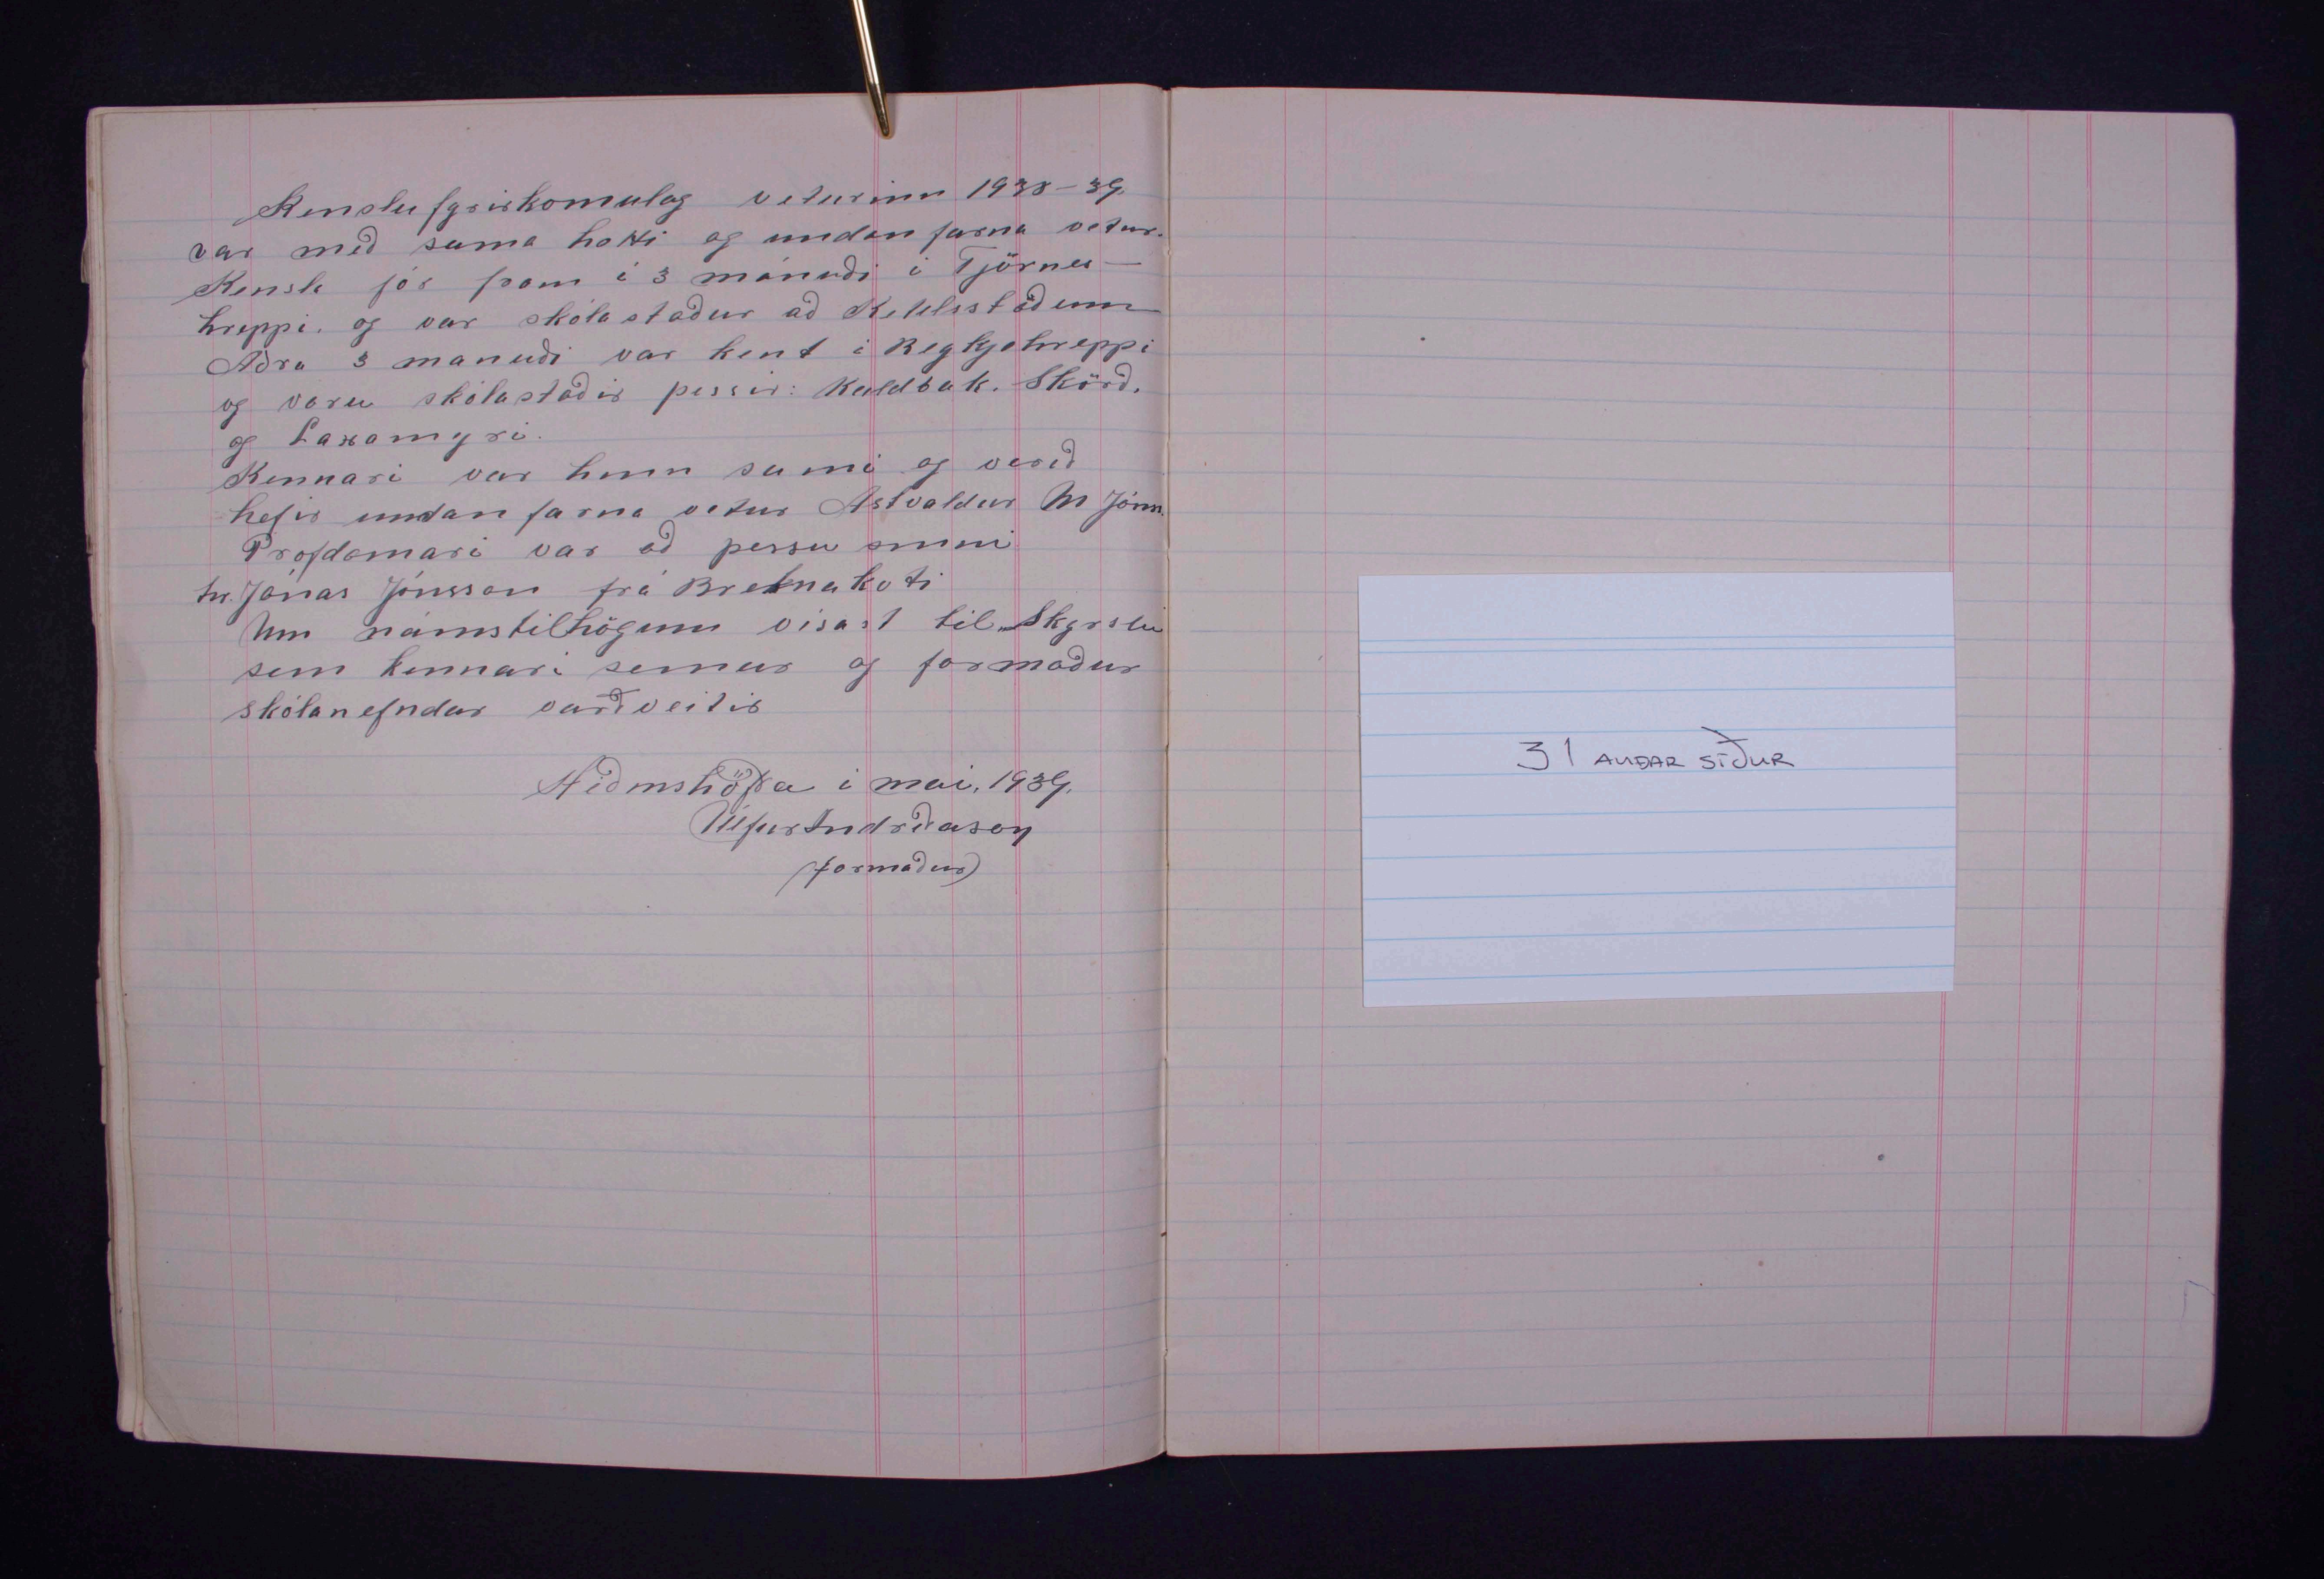 Kenslufyrirkomulag veturinn 1938-39.
var með sama hætti og undanfarna vetur.
Kensla fór fram í 3 mánuði í Tjörnes-
hreppi. og var skólastaður að Ketilsstöðum
Aðra 3 manuði var kent í Reykjahreppi
og voru skólastaðir þessir: Kaldbak. Skörð.
og Laxamyri.
Kennari var hinn sami og verið
hefir undanfarna vetur Astvaldur M Jónss.
Prófdomari var að þessu sinni
hr. Jónas Jónsson frá Breknakoti
Um námstilhögunn vísast til Skyrslu
sem kennari semur og formaður
skólanefndar varðveitir
Héðinshöfða í mai, 1939.
Úlfur Indriðason
(formaður)
31 AUÐAR SÍÐUR